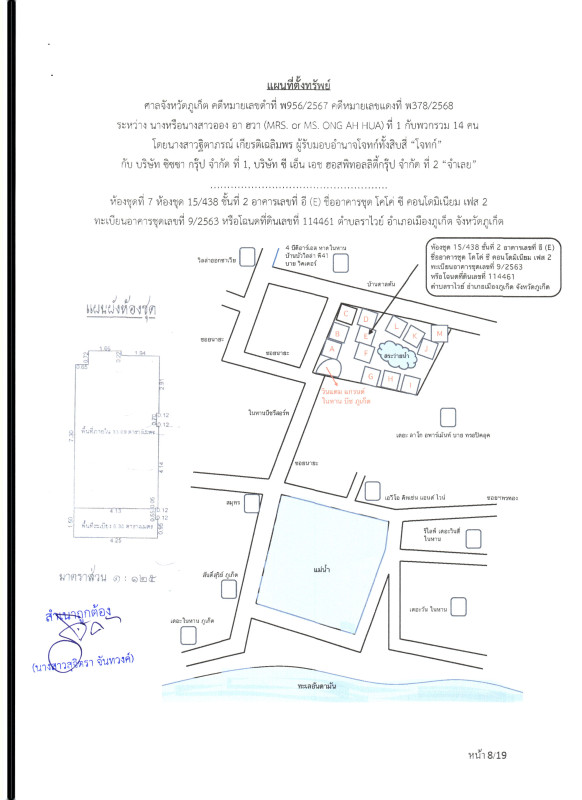 แผนที่ตั้งทรัพย์
ศาลจังหวัดภูเก็ต คดีหมายเลขดำที่ พ956/2567 คดีหมายเลขแดงที่ พ378/2568
ระหว่าง นางหรือนางสาวออง อา ฮวา (MRS. or MS. ONG AH HUA) ที่ 1 กับพวกรวม 14 คน
โดยนางสาวฐิตาภรณ์ เกียรติเฉลิมพร ผู้รับมอบอำนาจโจทก์ทั้งสิบสี่ "โจทก์"
กับ บริษัท ชิชชา กรุ๊ป จำกัด ที่ 1, บริษัท ซี เอ็น เอช ฮอสพิทอลลิตี้กรุ๊ป จำกัด ที่ 2 "จำเลย"
ห้องชุดที่ 7 ห้องชุด 15/438 ชั้นที่ 2 อาคารเลขที่ อี (E) ชื่ออาคารชุด โคโค่ ซี คอนโดมิเนียม เฟส 2
ทะเบียนอาคารชุดเลขที่ 9/2563 หรือโฉนดที่ดินเลขที่ 114461 ตำบลราไวย์ อำเภอเมืองภูเก็ต จังหวัดภูเก็ต
ห้องชุด 15/438 ชั้นที่ 2 อาคารเลขที่ อี (E)
ชื่ออาคารชุด โคโค่ ซี คอนโดมิเนียม เฟส 2
ทะเบียนอาคารชุดเลขที่ 9/2563
หรือโฉนดที่ดินเลขที่ 114461
ตำบลราไวย์ อำเภอเมืองภูเก็ต จังหวัดภูเก็ต
บ้านตาลตัน
แผนผังห้องชุด
ซอยนายะ
ซอยนายะ
C
D
B
E
A
F
L
K
M
J
G
H
I
สระว่ายน้ำ
ในหาน บีช ภูเก็ต
ในหานบีชรีสอร์ท
ซอยนายะ
1.65
1.84
0.72
0.65
2.91
7.30
0.12
0.12
4.14
4.15
0.12
0.12
1.50
4.25
มาตราส่วน ๑ : ๑๒๕
สมุทร
แม่น้ำ
ในหาน
เดอะวัน ในหาน
เดอะในหาน ภูเก็ต
ทะเลอันดามัน
สำเนาถูกต้อง
(นางสาวสุจิตรา จันทวงค์)
หน้า 8/19